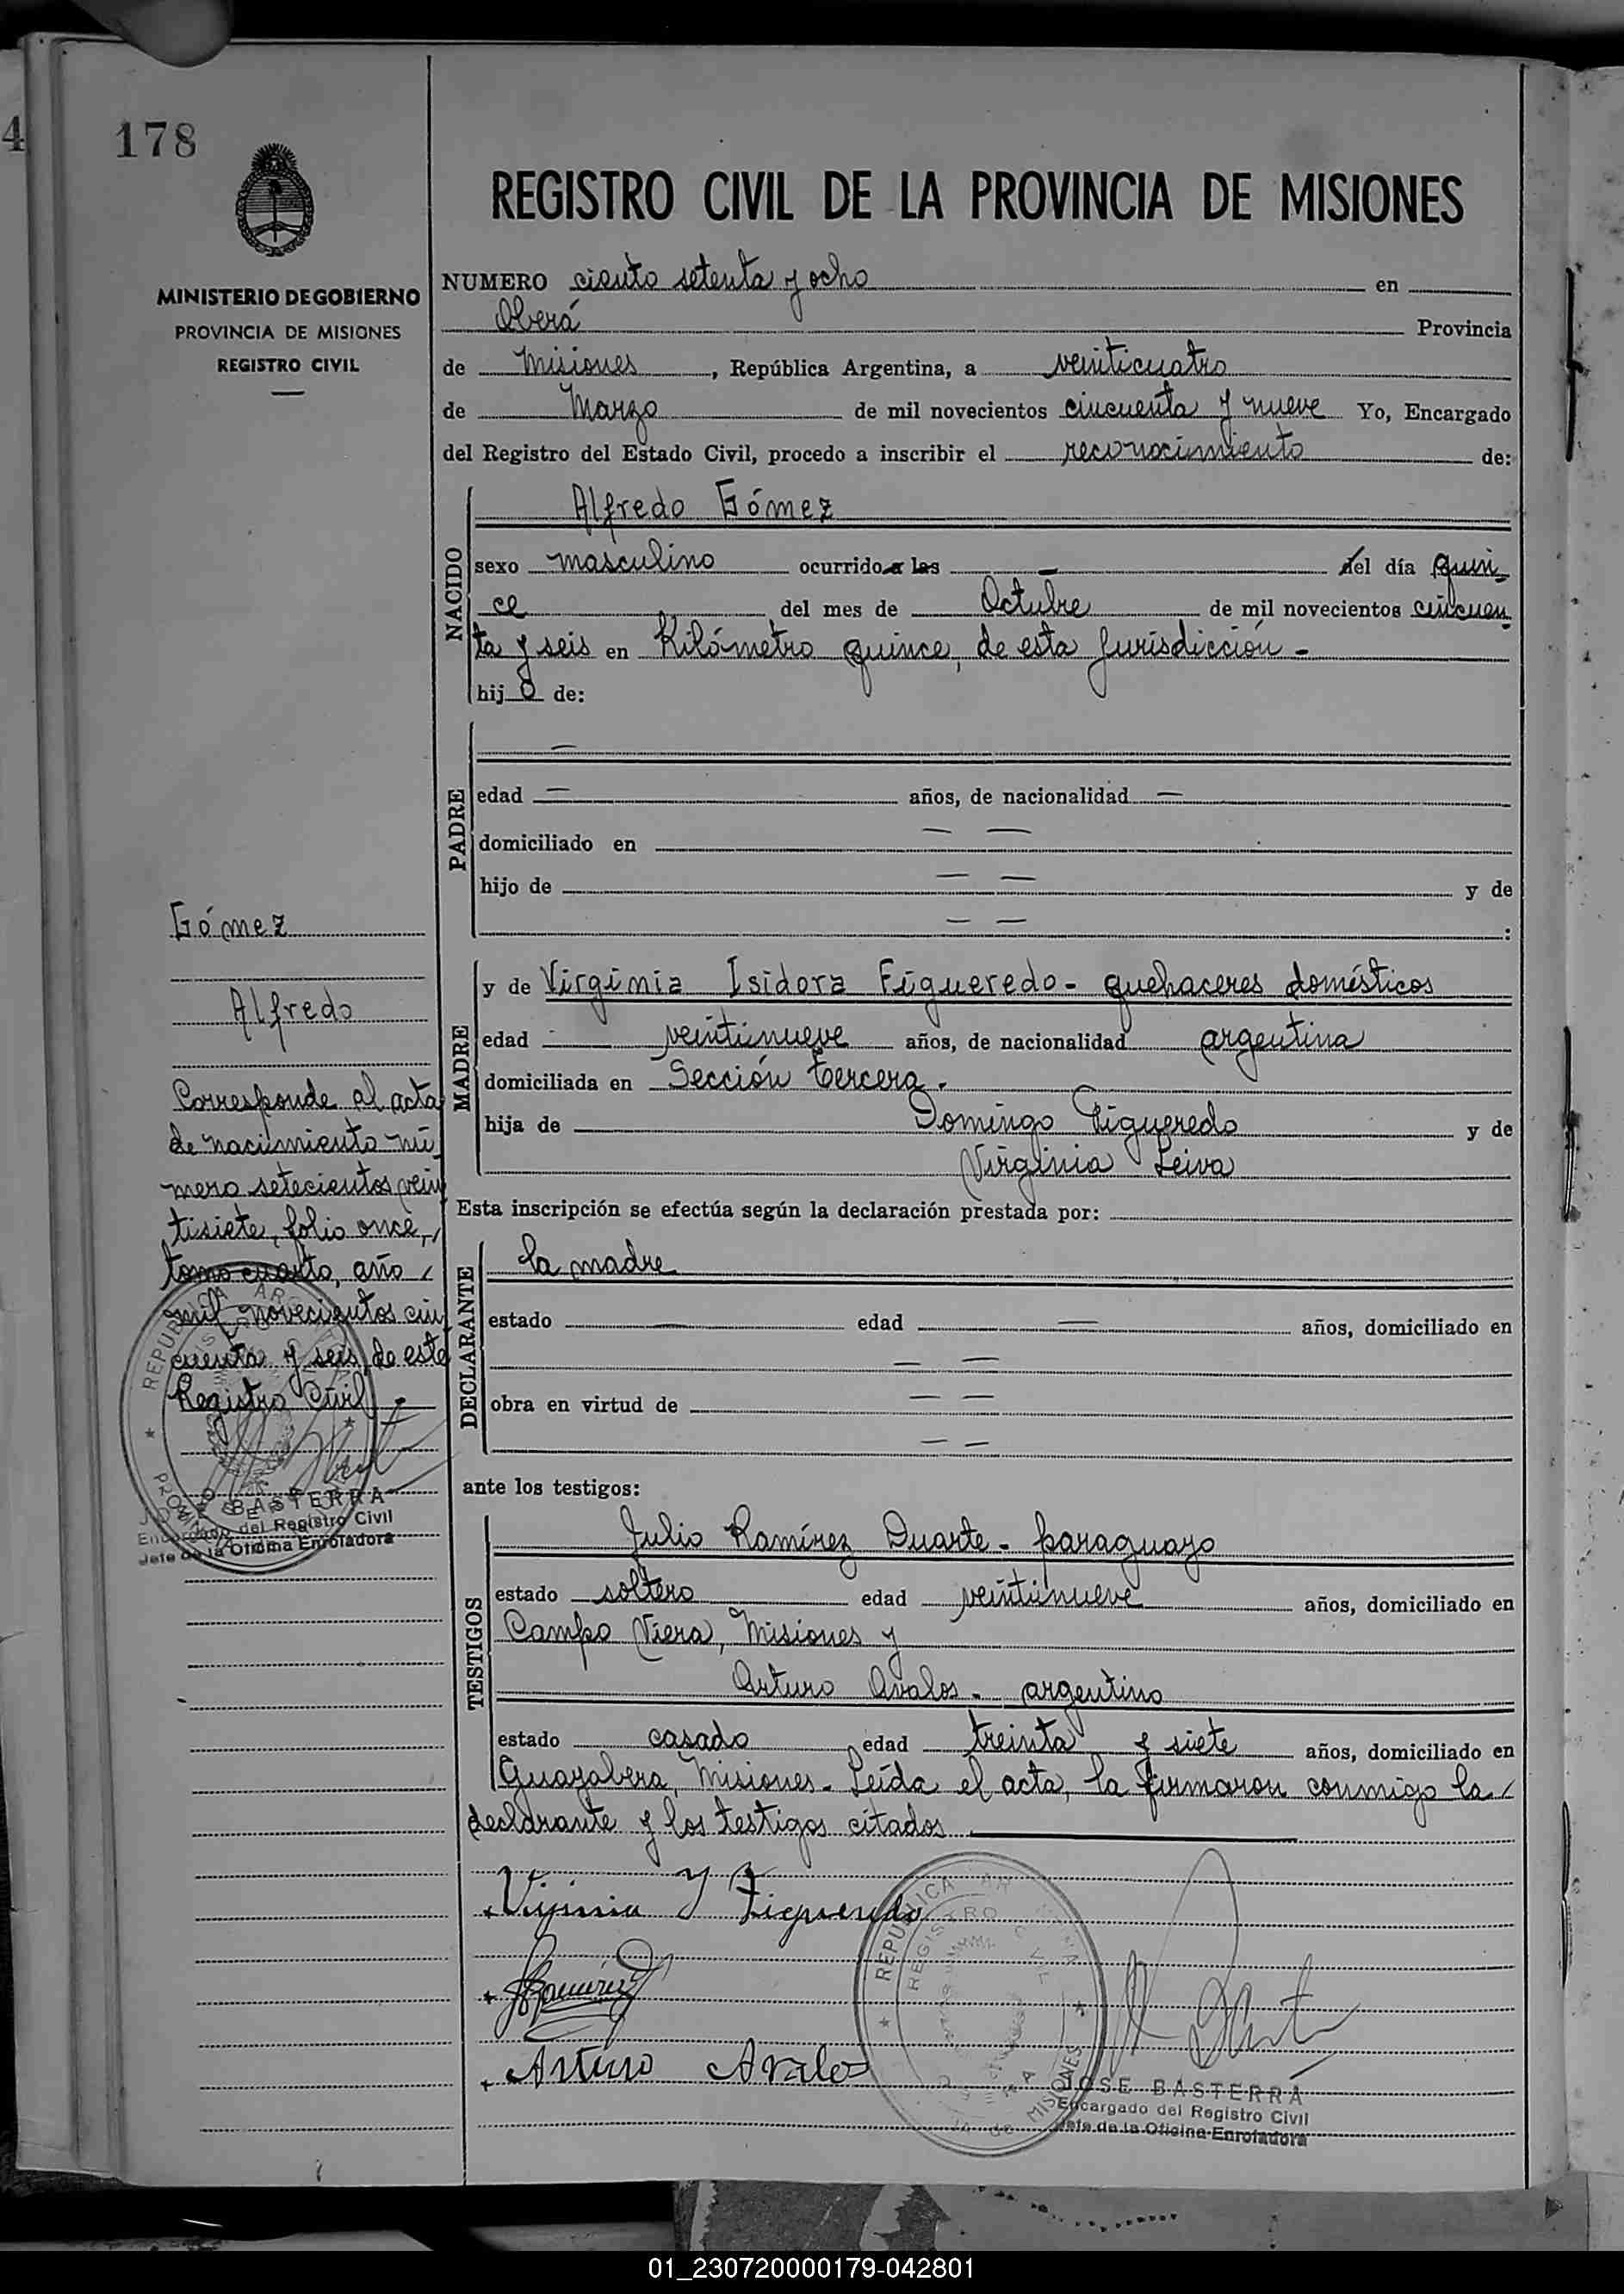 4
178
MINISTERIO DE GOBIERNO
PROVINCIA DE MISIONES
REGISTRO CIVIL
REGISTRO CIVIL DE LA PROVINCIA DE MISIONES
NUMERO ciento setenta y ocho en
Oberá Provincia
de Misiones, República Argentina, a veinticuatro
de Marzo de mil novecientos cincuenta y nueve Yo, Encargado
del Registro del Estado Civil, procedo a inscribir el reconocimiento de:
NACIDO
Alfredo Gómez
sexo masculino ocurrido a las — del día quin
ce del mes de Octubre de mil novecientos cincuen
ta y seis en Kilómetro quince, de esta Jurisdicción -
hijo de:
PADRE
—
edad — años, de nacionalidad —
domiciliado en — —
hijo de — — y de
— — :
MADRE
y de Virginia Isidora Figueredo - quehaceres domésticos
edad veintinueve años, de nacionalidad argentina
domiciliada en Sección tercera.
hija de Domingo Figueredo y de
Virginia Leiva
Esta inscripción se efectúa según la declaración prestada por:
DECLARANTE
la madre
estado — edad — años, domiciliado en
— —
obra en virtud de — —
— —
ante los testigos:
TESTIGOS
Julio Ramírez Duarte - paraguayo
estado soltero edad veintinueve años, domiciliado en
Campo Viera, Misiones y
Arturo Avalos - argentino
estado casado edad treinta y siete años, domiciliado en
Guayabera, Misiones - Leída el acta, la firmaron conmigo la
declarante y los testigos citados
Virjinia Y Figueredo
Ramirez
Arturo Avalos
REPUBLICA ARGENTINA
REGISTRO CIVIL
MISIONES
JOSE BASTERRA
Encargado del Registro Civil
Jefe de la Oficina Enroladora
Gómez
Alfredo
Corresponde al acta
de nacimiento nú
mero setecientos vein
tisiete, folio once,
tomo cuarto, año
mil novecientos cin
cuenta y seis, de este
Registro Civil.
REPUBLICA ARGENTINA
JOSE BASTERRA
Encargado del Registro Civil
Jefe de la Oficina Enroladora
01_230720000179-042801